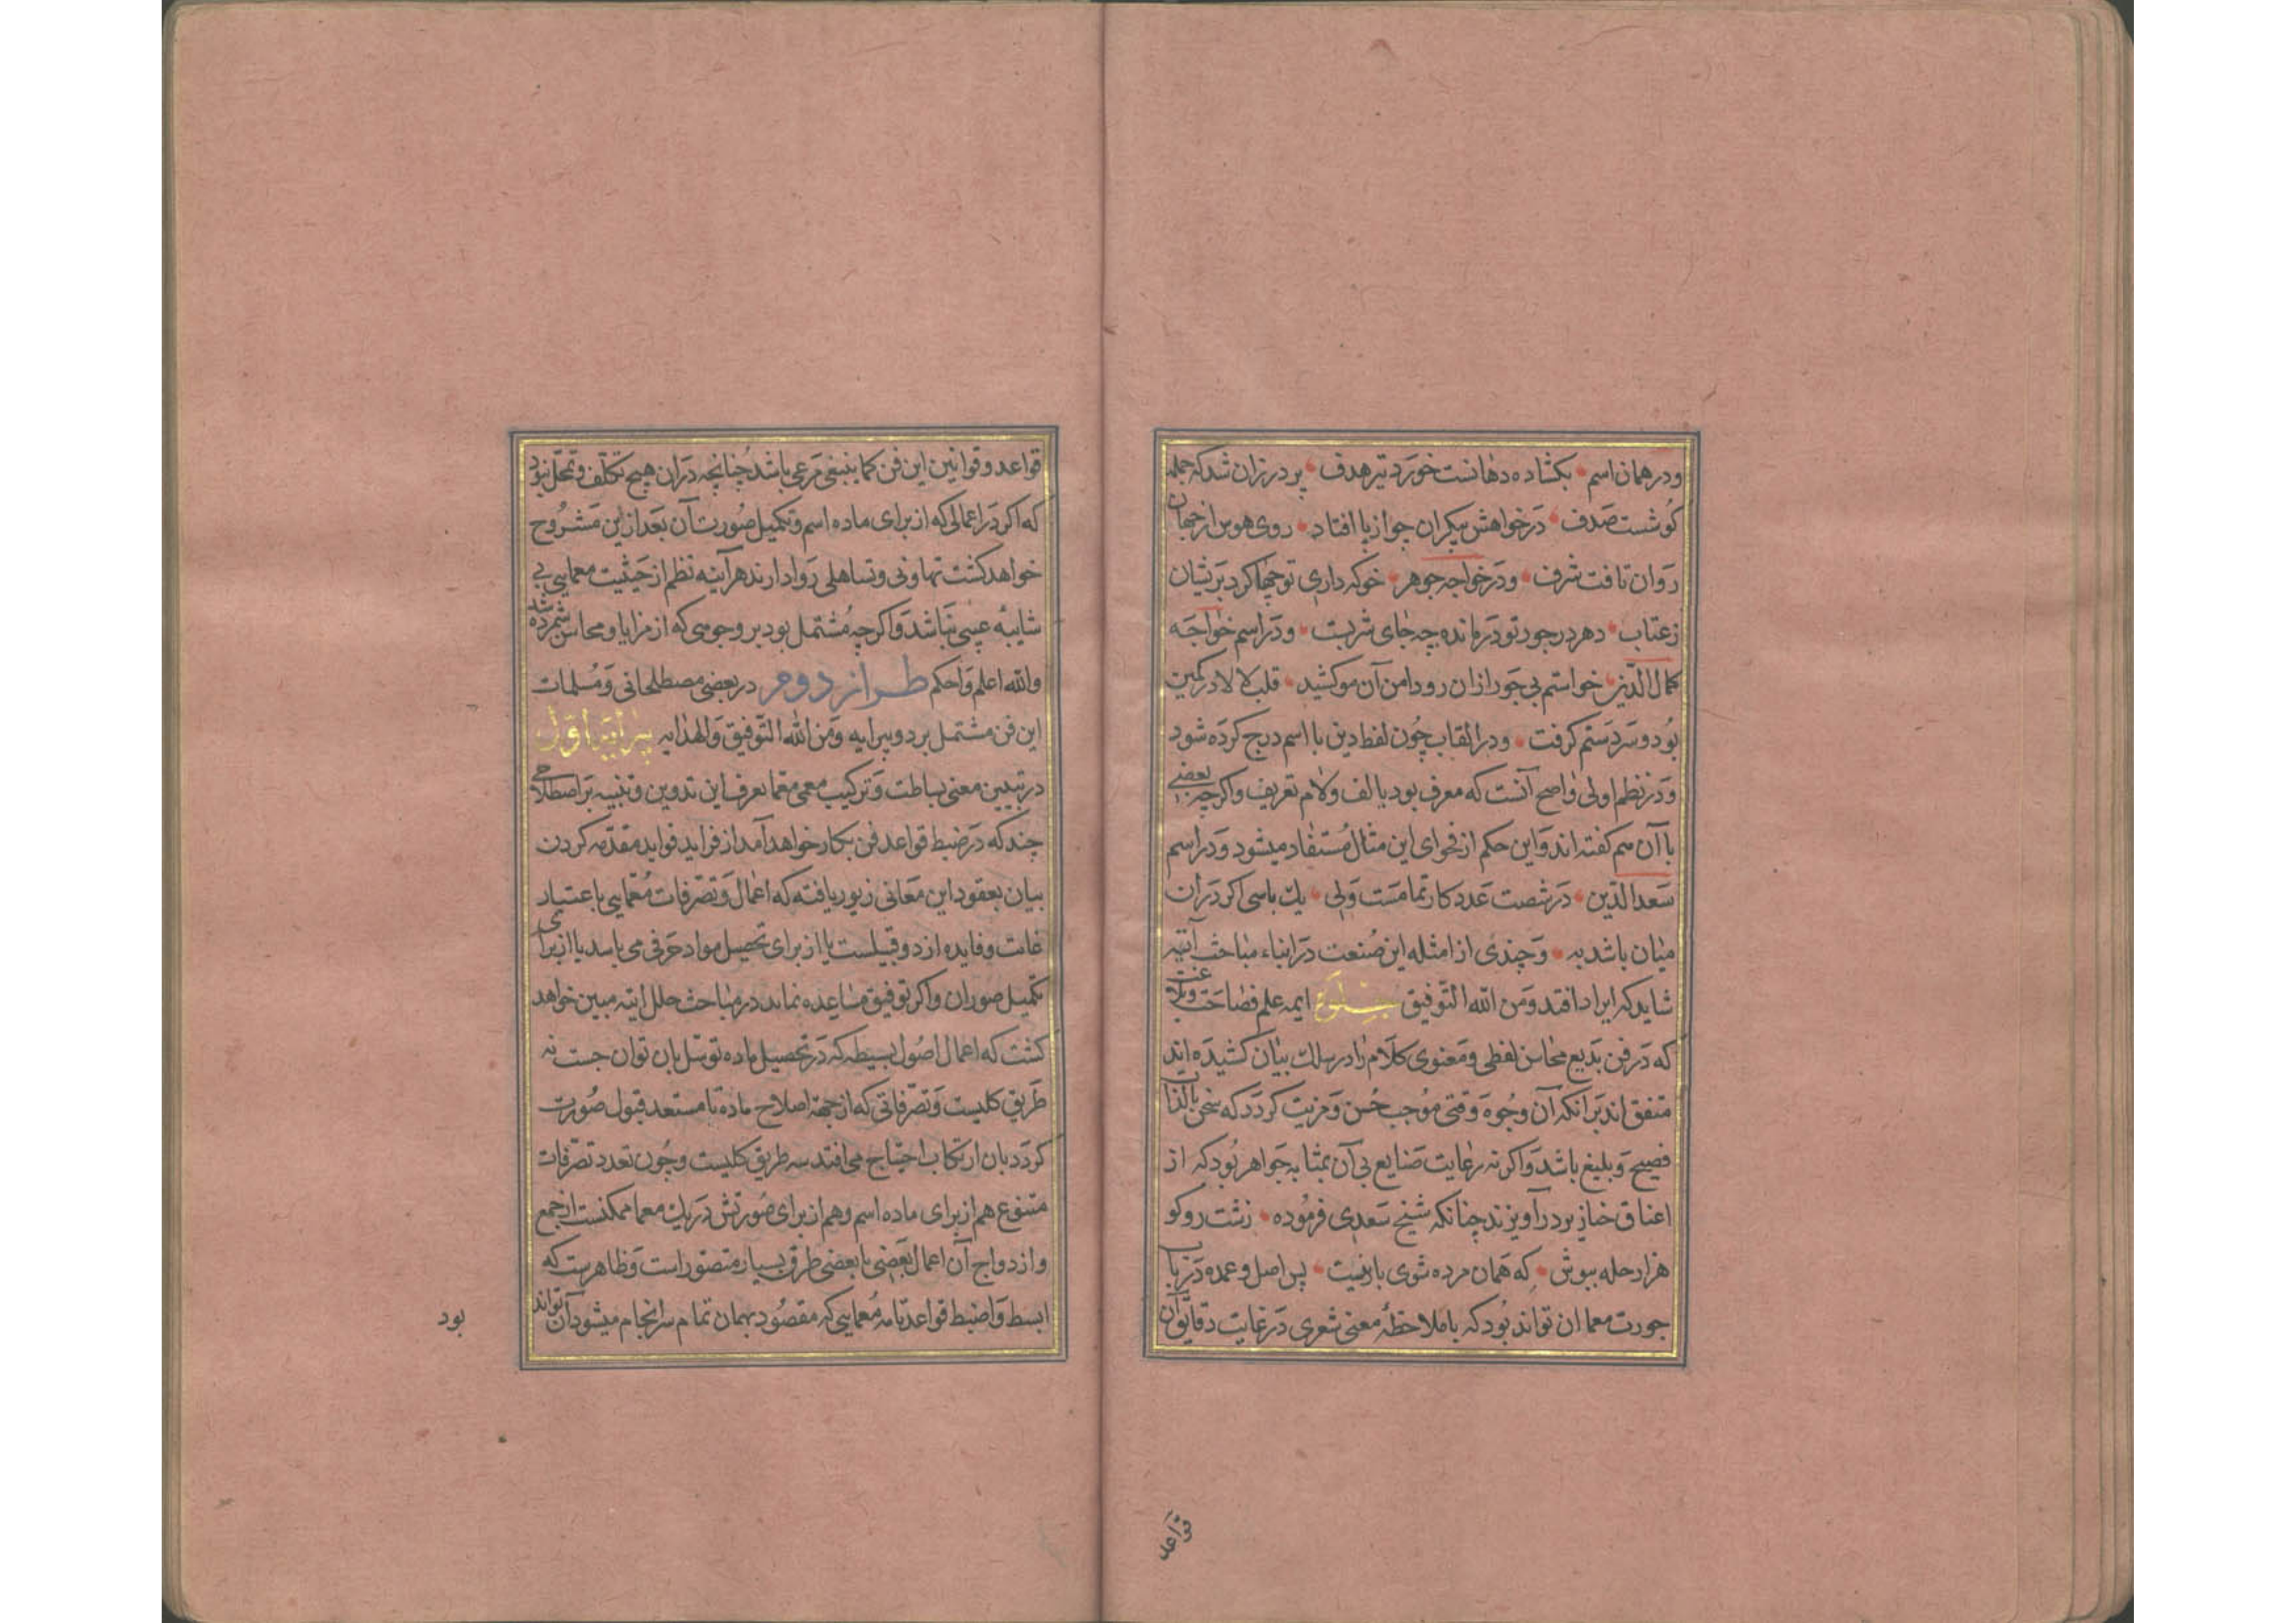 ودر همان اسم • بکشاده دهانست خورد تیر هدف • پر در زان شد که جمله
کوشست صدف • در خواهش بیکران چو از پا افتاد • روی هوس از جهان
روان تافت شرف • ودر خواجه جوهر • خوکه داری تو جهٰا کرد پریشان
زعتاب • دهر در جور تو در مانده چه جای شربت • ودر اسم خواجه
کمال الدین • خواستم بی جور از ان رو دامن آن مو کشید • قلب لالا در کمین
بود و سر دستم کرفت • ودر القاب چون لفظ دین با اسم درج کرده شود
ودر نظم اولی واصح آنست که معرف بود با الف ولام تعریف واکرچه بعضی
با آن سم کفته اند واین حکم از فحوای این مثال مستفاد میشود ودر اسم
سعد الدین • در شصت عدد کار تمامست ولی • یك باسی اکر در ان
میان باشد به • وچندی از امثله این صنعت در اثناء مباحث آتیه
شاید که ایراد افتد ومن الله التوفیق ایمه علم فصاحت وبلاغت
که در فن بدیع محاسن لفظی ومعنوی کلام را در سلك بیان کشیده اند
متفق اند بر انکه آن وجوه وقتی موجب حسن ومزیت کردد که سخن بالذات
فصیح وبلیغ باشد واکر نه رعایت صنایع بی آن بمثابه جواهر بود که از
اعناق خنازیر در آویزند چنانکه شیخ سعدی فرموده • زشت رو کو
هزار حله بپوش • که همان مرده شوی بادنیست • پس اصل وعمده در باب
جودت معما ان تواند بود که با ملاحظهٔ معنی شعری در غایت دقایق آن
قواعد
قواعد وقوانین این فن کما ینبغی مرعی باشد چنانچه در ان هیچ تکلف وتمحل نبود
که اکر در اعمالی که از برای ماده اسم وتکمیل صورت آن بعد از این مشروح
خواهد کشت تهاونی وتساهلی روا دارند هر آینه نظم از حیثیت معمایی بی
شایبه عیبی نباشد واکرچه مشتمل بود بر وجوهی که از مزایا ومحاسن شمرده شد
والله اعلم واحکم طراز دوم در بعضی مصطلحاتی ومسلمات
این فن مشتمل بر دو پیرایه ومن الله التوفیق والهدایه پیرایه اول
در تبیین معنی بساطت وترکیب معمی معما بعرف این تدوین وتنبیه بر اصطلاحی
چند که در ضبط قواعد فن بکار خواهد آمد از فراید فواید مقدمه کردن
بیان بعقود این معانی زیور یافته که اعمال وتصرفات معمایی باعتبار
غایت وفایده از دو قبیلست یا از برای تحصیل مواد حرفی می باسد یا از برای
تکمیل صور ان واکر توفیق مساعده نماید در مباحث حلل اتیه مبین خواهد
کشت که اعمال اصول بسیطه که در تحصیل ماده توسل بان توان جست نه
طریق کلیست وتصرفاتی که از جهة اصلاح ماده تا مستعد قبول صورت
کردد بان ارتکاب احتیاج می افتد سه طریق کلیست وچون تعدد تصرفات
متنوع هم از برای ماده اسم وهم از برای صورتش در یك معما ممکنست از جمع
وازدواج آن اعمال بعضی با بعضی طرق بسیار متصور است وظاهرست که
ابسط واضبط قواعد تامه معمایی که مقصود بهمان تمام سر انجام میشود آن تواند
بود